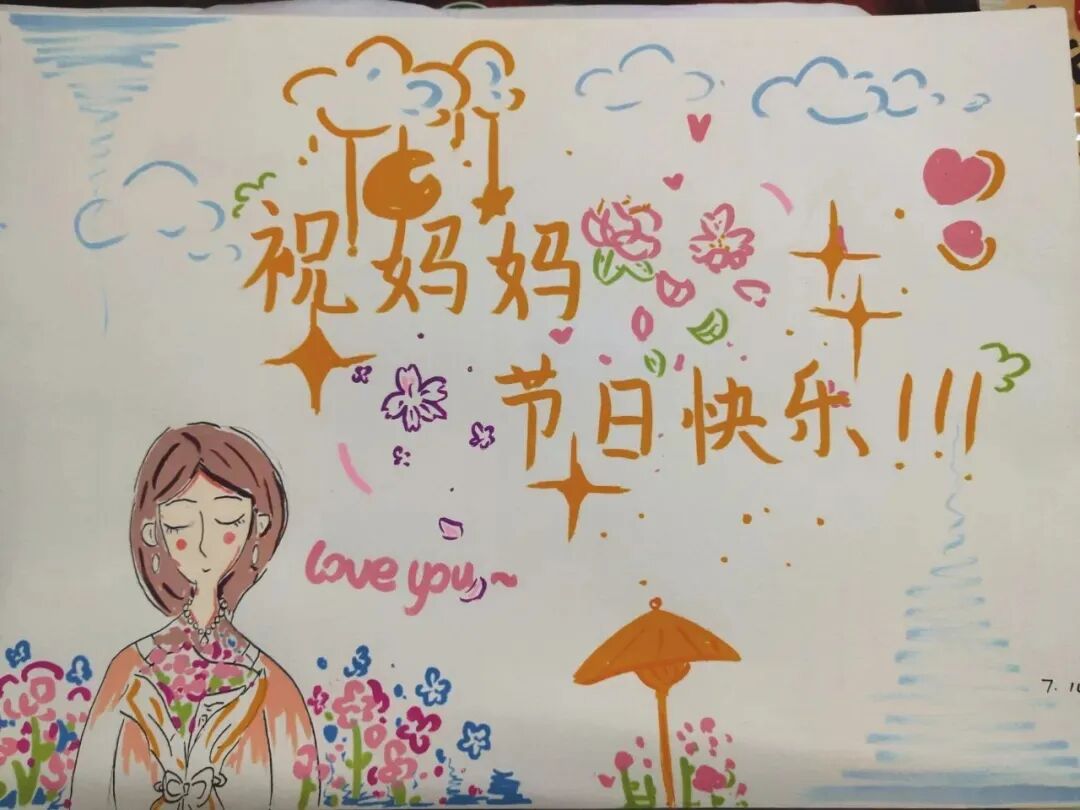 祝妈妈
节日快乐!!!
love you~